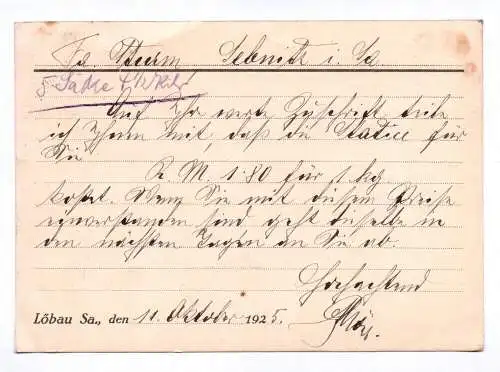 Fa. Sturm Sebnitz i. Sa.
5 Säcke
Auf Ihr werte Zuschrift teile
ich Ihnen mit, daß die Statice für
Sie
R M. 1.80 für 1 kg
kostet. Wenn Sie mit diesem Preise
einverstanden sind geht dieselbe in
den nächsten Tagen an Sie ab.
Hochachtend
Löbau Sa., den 11. Oktober 1925.